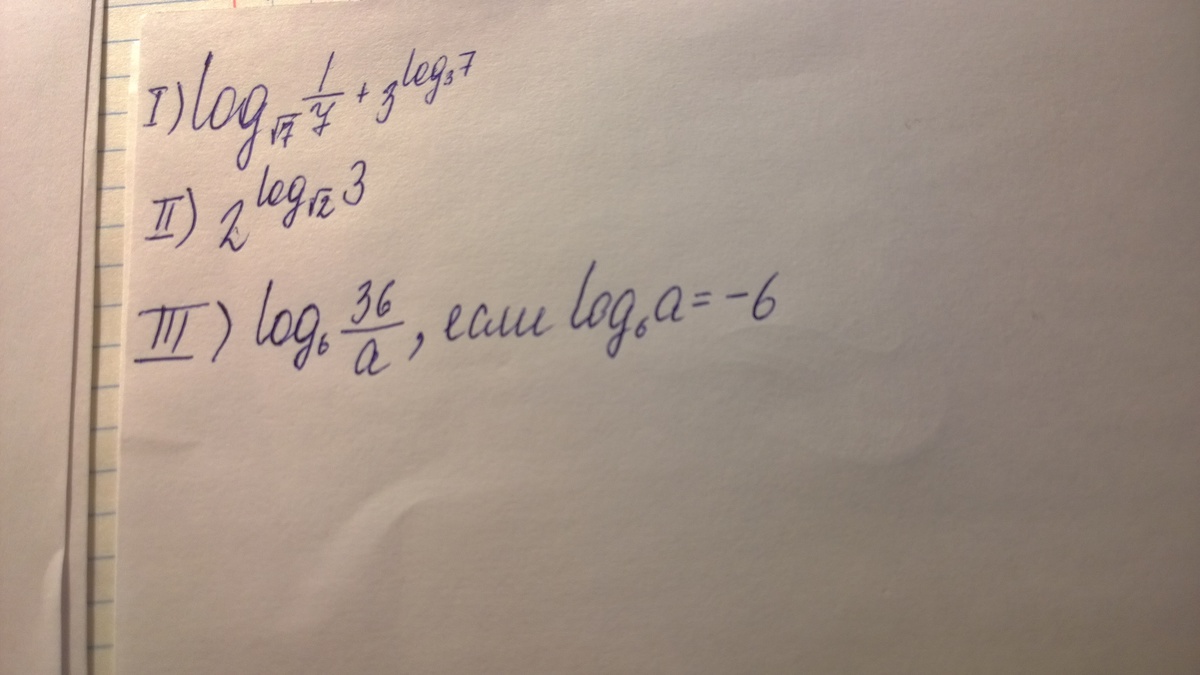 I) log_√7 1/7 + 3^log_3 7
II) 2^log_√2 3
III) log_6 36/a, если log_6 a = -6